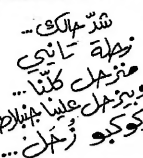 شدّ حالك...
زحلة تاني
منزحل كلّنا...
وبيزحل علينا جنبلاط
كوكبو زُحل...